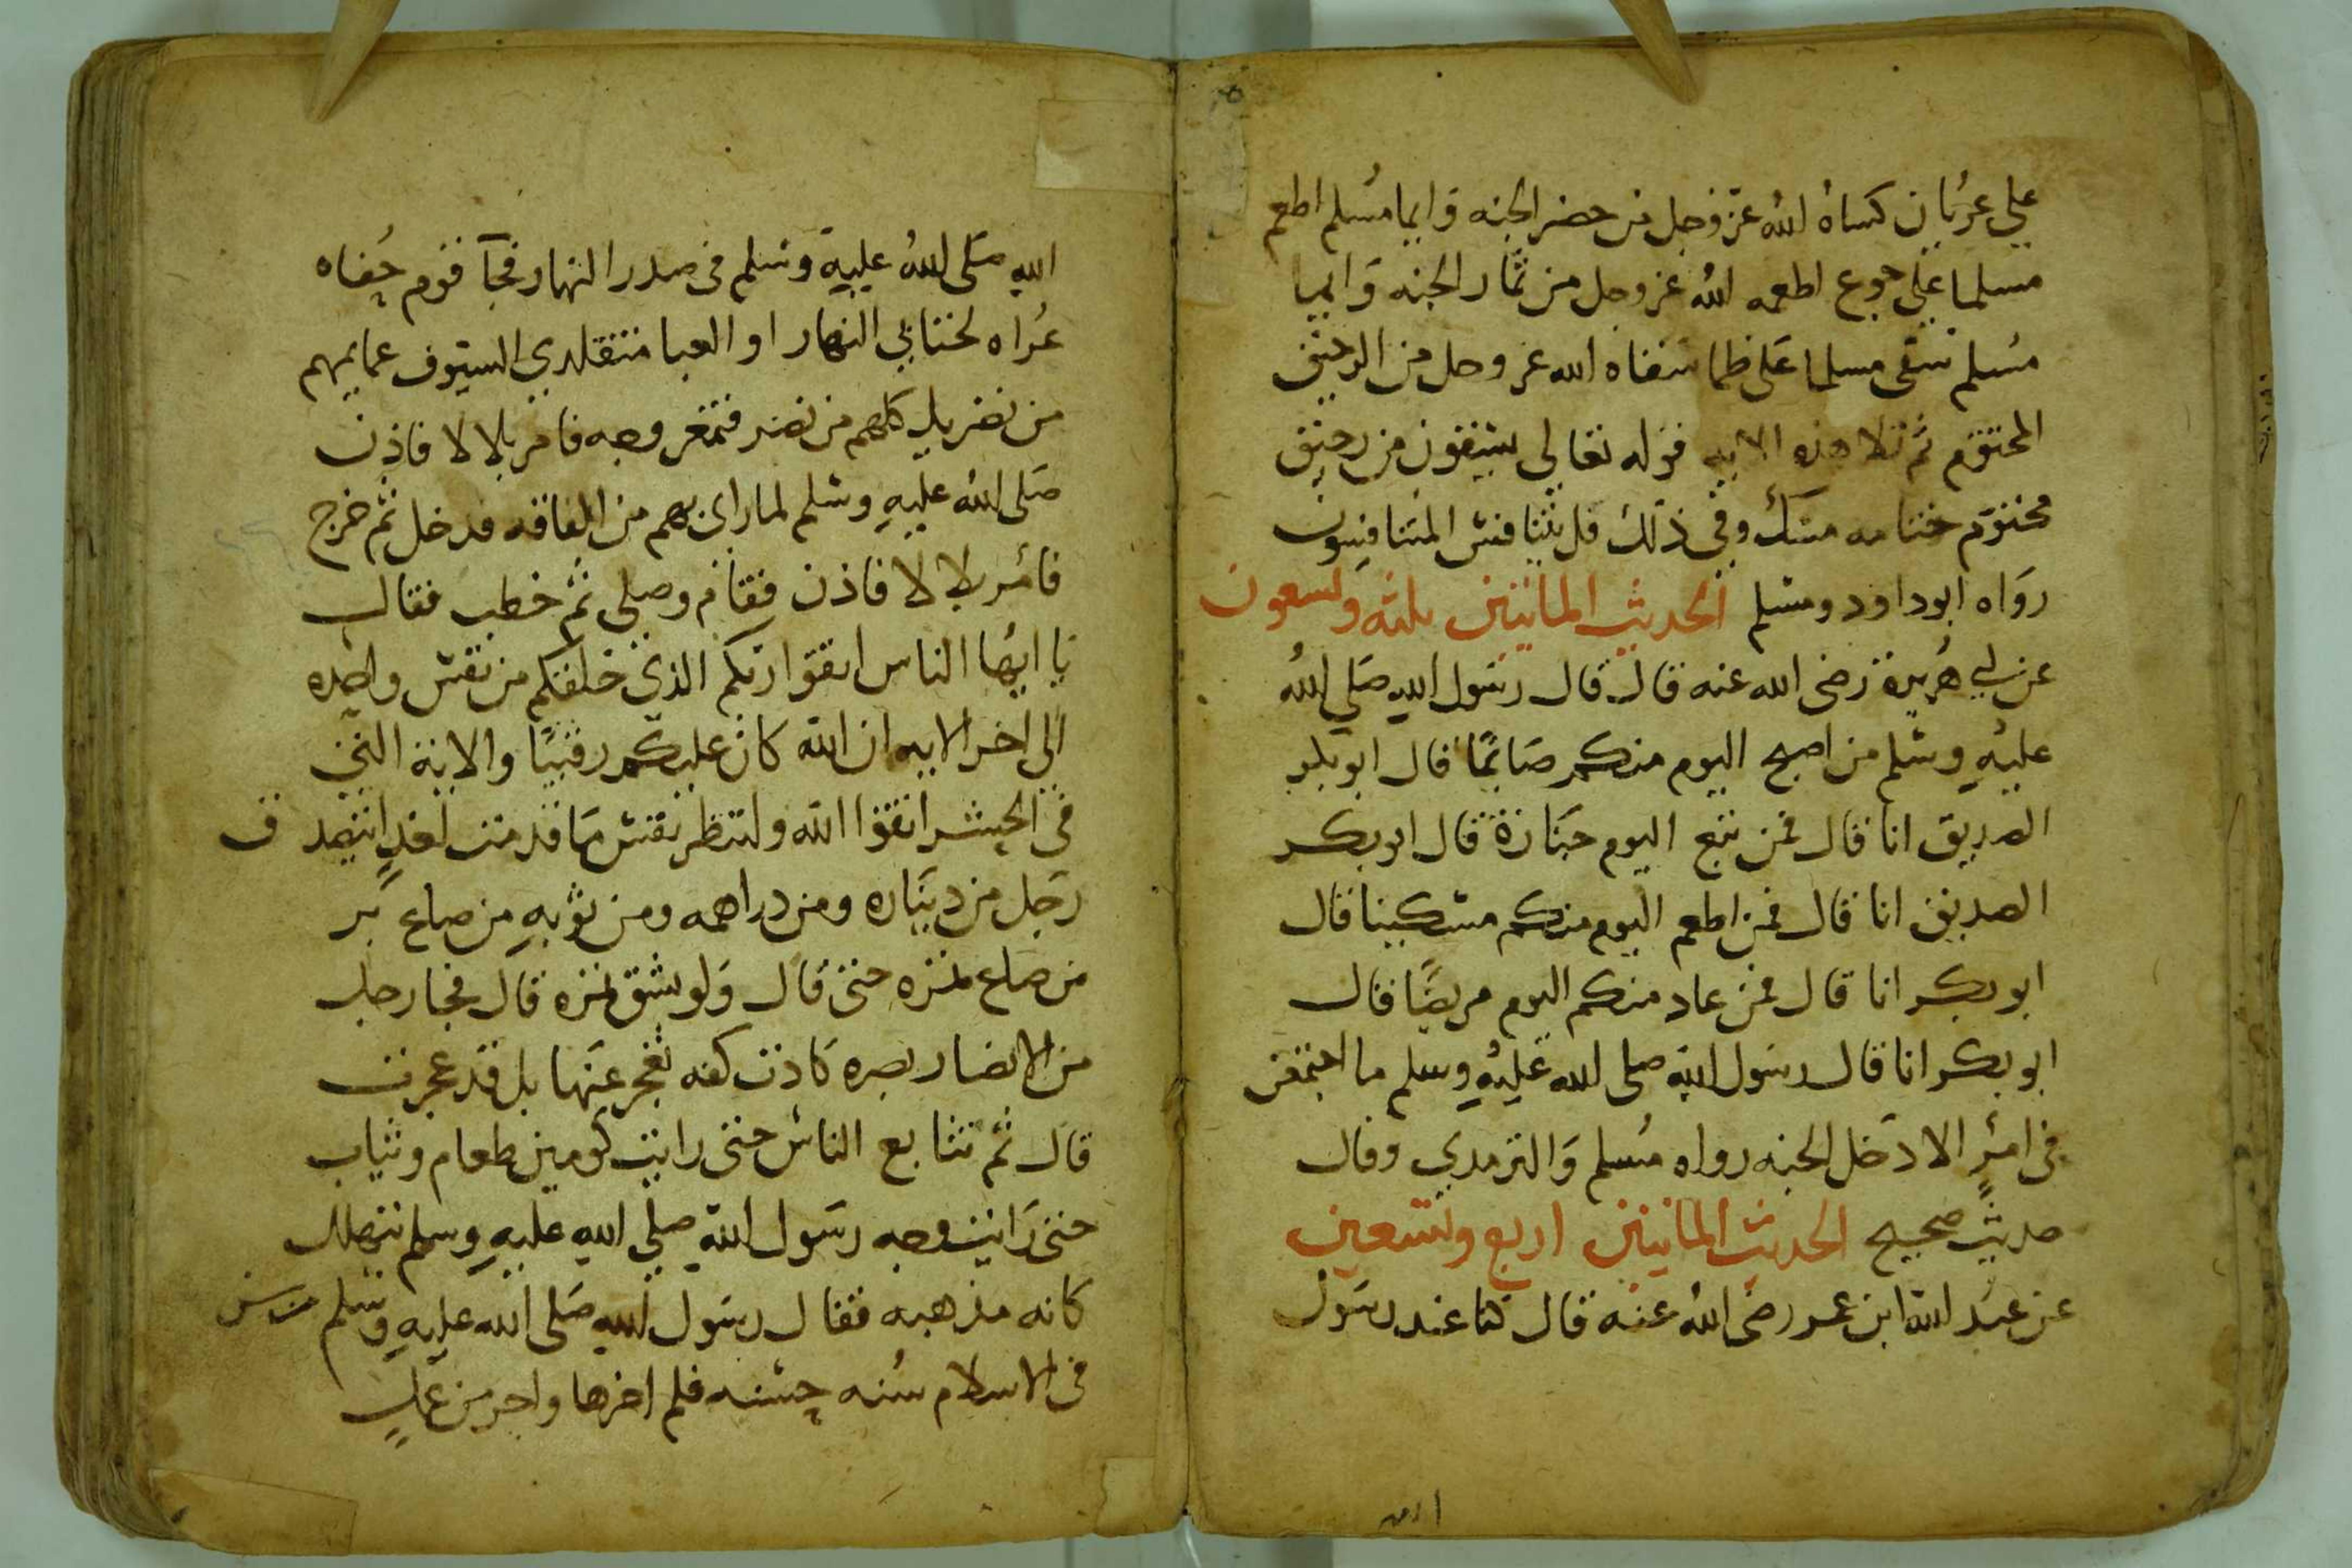 على عريان كساه الله عز وجل من حضر الجنه وايما مسلم اطعم
مسلما على جوع اطعمه الله عز وجل من ثمار الجنه وايما
مسلم سقى مسلما على ظما سقاه الله عز وجل من الرحيق
المختوم ثم تلا هذه الايه قوله تعالى يسقون من رحيق
مختوم ختامه مسك وفي ذلك فليتنافس المتنافسون
رواه ابو داود ومسلم الحديث المائتين ثلثه وتسعون
عن ابي هريرة رضى الله عنه قال قال رسول الله صلي الله
عليه وسلم من اصبح اليوم منكم صائمًا قال ابو بكر
الصديق انا قال فمن تبع اليوم جنازة قال ابو بكر
الصديق انا قال فمن اطعم اليوم منكم مسكينا قال
ابو بكر انا قال فمن عاد منكم اليوم مريضًا قال
ابو بكر انا قال رسول الله صلى الله عليه وسلم ما اجتمعن
في امرٍ الا دخل الجنه رواه مسلم والترمدي وقال
حديث صحيح الحديث المائتين اربع وتسعين
عن عبد الله ابن عمر رضى الله عنه قال كنا عند رسول
الله صلى الله عليه وسلم في صدر النهار فجآ قوم حفاه
عراه لختابي النمار او العبا متقلدي السيوف عمايمهم
من نضر بل كلهم من نضر فتمغر وجه فامر بلالا فاذن
صلى الله عليه وسلم لما راى بهم من الفاقه فدخل ثم خرج
فامر بلالا فاذن فقام وصلى ثم خطب فقال
يا ايها الناس اتقوا ربكم الذي خلقكم من نفس واحده
الى اخر الايه ان الله كان عليكم رقيبًا والاية التي
في الحشر اتقوا الله ولتنظر نفس ما قدمت لغدٍ اتصدق
رجل من ديناره ومن دراهمه ومن ثوبه من صاع بر
من صاع تمره حتى قال ولو بشق تمره قال فجا رجل
من الانصار بصره كادت كفه تعجز عنها بل قد عجزت
قال ثم تتابع الناس حتى رايت كومين طعام وثياب
حتى رايت وجه رسول الله صلى الله عليه وسلم يتهلل
كانه مذهبه فقال رسول الله صلى الله عليه وسلم من سن
في الاسلام سنه حسنه فلم اجرها واجر من عمل